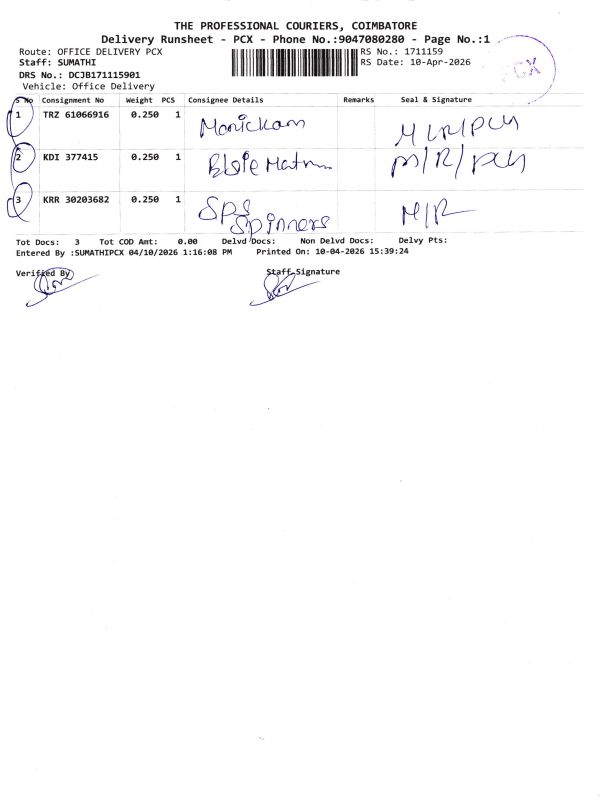 THE PROFESSIONAL COURIERS, COIMBATORE
Delivery Runsheet - PCX - Phone No.:9047080280 - Page No.:1
Route: OFFICE DELIVERY PCX
RS No.: 1711159
Staff: SUMATHI
RS Date: 10-Apr-2026
DRS No.: DCJB171115901
Vehicle: Office Delivery
PCX
S No Consignment No Weight PCS Consignee Details Remarks Seal & Signature
1 TRZ 61066916 0.250 1 Manickam
2 KDI 377415 0.250 1 M/R/PCX
3 KRR 30203682 0.250 1 Sps Spinners M/R
Tot Docs: 3 Tot COD Amt: 0.00 Delvd Docs: Non Delvd Docs: Delvy Pts:
Entered By :SUMATHIPCX 04/10/2026 1:16:08 PM Printed On: 10-04-2026 15:39:24
Verified By Staff Signature